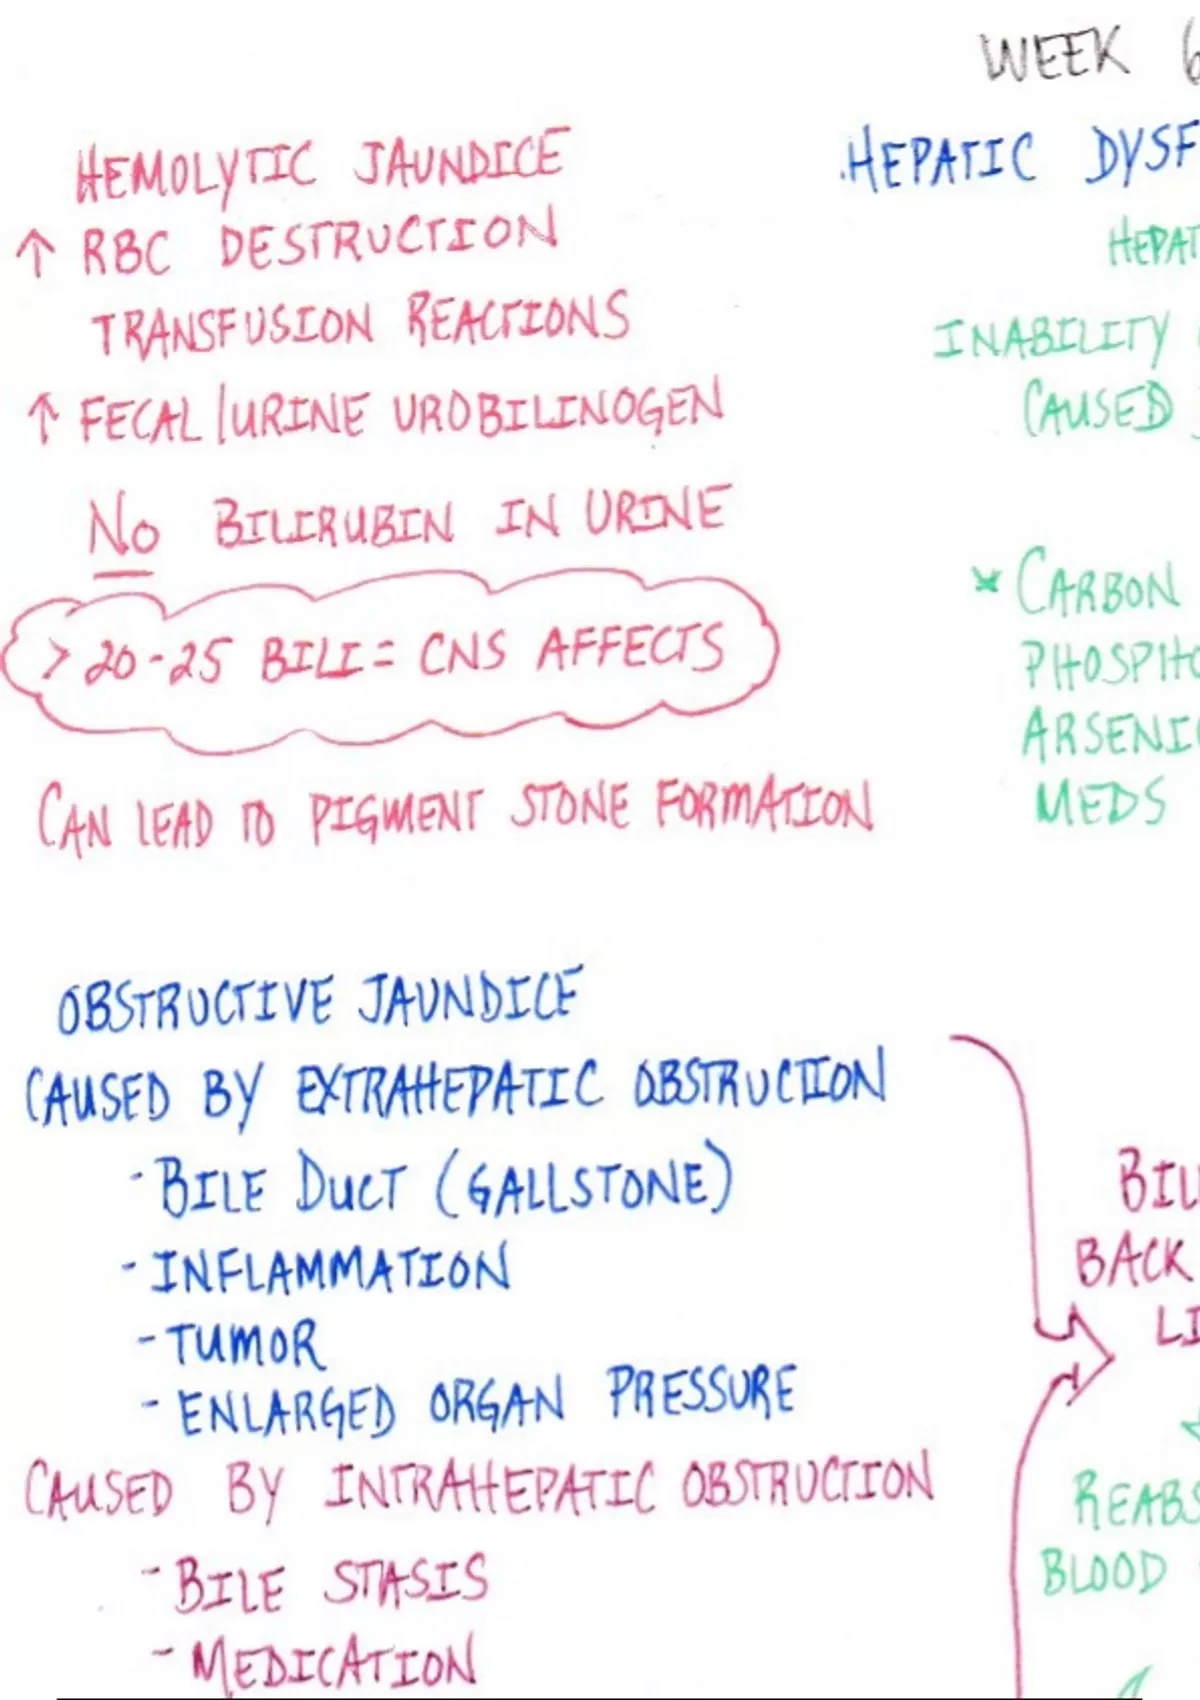 WEEK 6
HEMOLYTIC JAUNDICE
↑ RBC DESTRUCTION
TRANSFUSION REACTIONS
↑ FECAL/URINE UROBILINOGEN
No BILIRUBIN IN URINE
> 20-25 BILI = CNS AFFECTS
CAN LEAD TO PIGMENT STONE FORMATION
HEPATIC DYSF
HEPAT
INABILITY
CAUSED
* CARBON
PHOSPHO
ARSENIC
MEDS
OBSTRUCTIVE JAUNDICE
CAUSED BY EXTRAHEPATIC OBSTRUCTION
- BILE DUCT (GALLSTONE)
- INFLAMMATION
- TUMOR
- ENLARGED ORGAN PRESSURE
CAUSED BY INTRAHEPATIC OBSTRUCTION
- BILE STASIS
- MEDICATION
BIL
BACK
LI
REABS
BLOOD